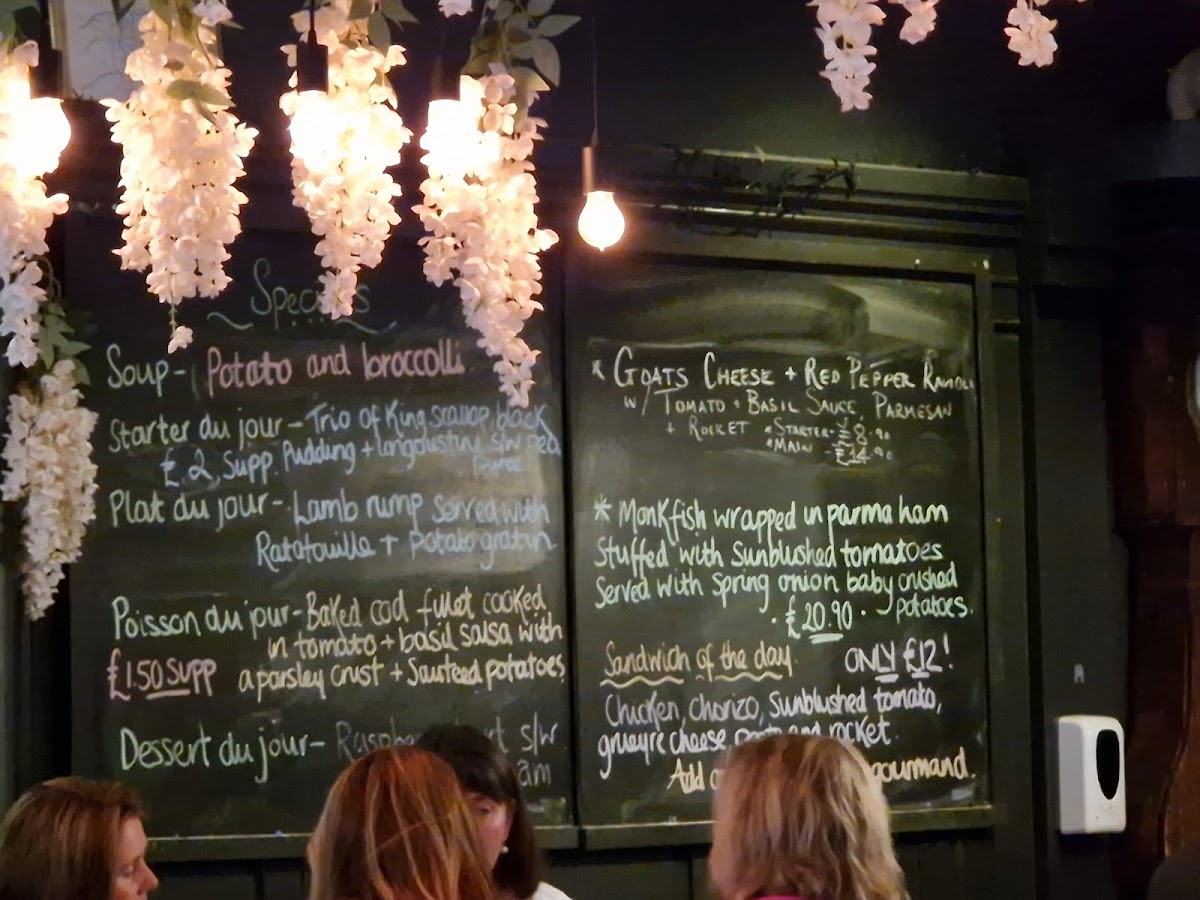 Specials
Soup - Potato and broccolli
Starter du jour - Trio of King scallop, black
£2 Supp. Pudding + langoustine s/w pea
Puree
Plat du jour - Lamb rump served with
Ratatouille + potato gratin
Poisson du jour - Baked cod fillet cooked
in tomato + basil salsa with
£1.50 supp a parsley crust + Sauteed potatoes
Dessert du jour - s/w
* GOATS CHEESE + RED PEPPER RAVIOLI
W/ TOMATO + BASIL SAUCE, PARMESAN
+ ROCKET *STARTER - £8.90
*MAIN - £14.90
* Monkfish wrapped in parma ham
Stuffed with Sunblushed tomatoes
Served with spring onion baby crushed
· £20.90 · potatoes.
Sandwich of the day. ONLY £12!
Chicken, chorizo, Sunblushed tomato,
grueyre cheese and rocket.
Add gourmand.